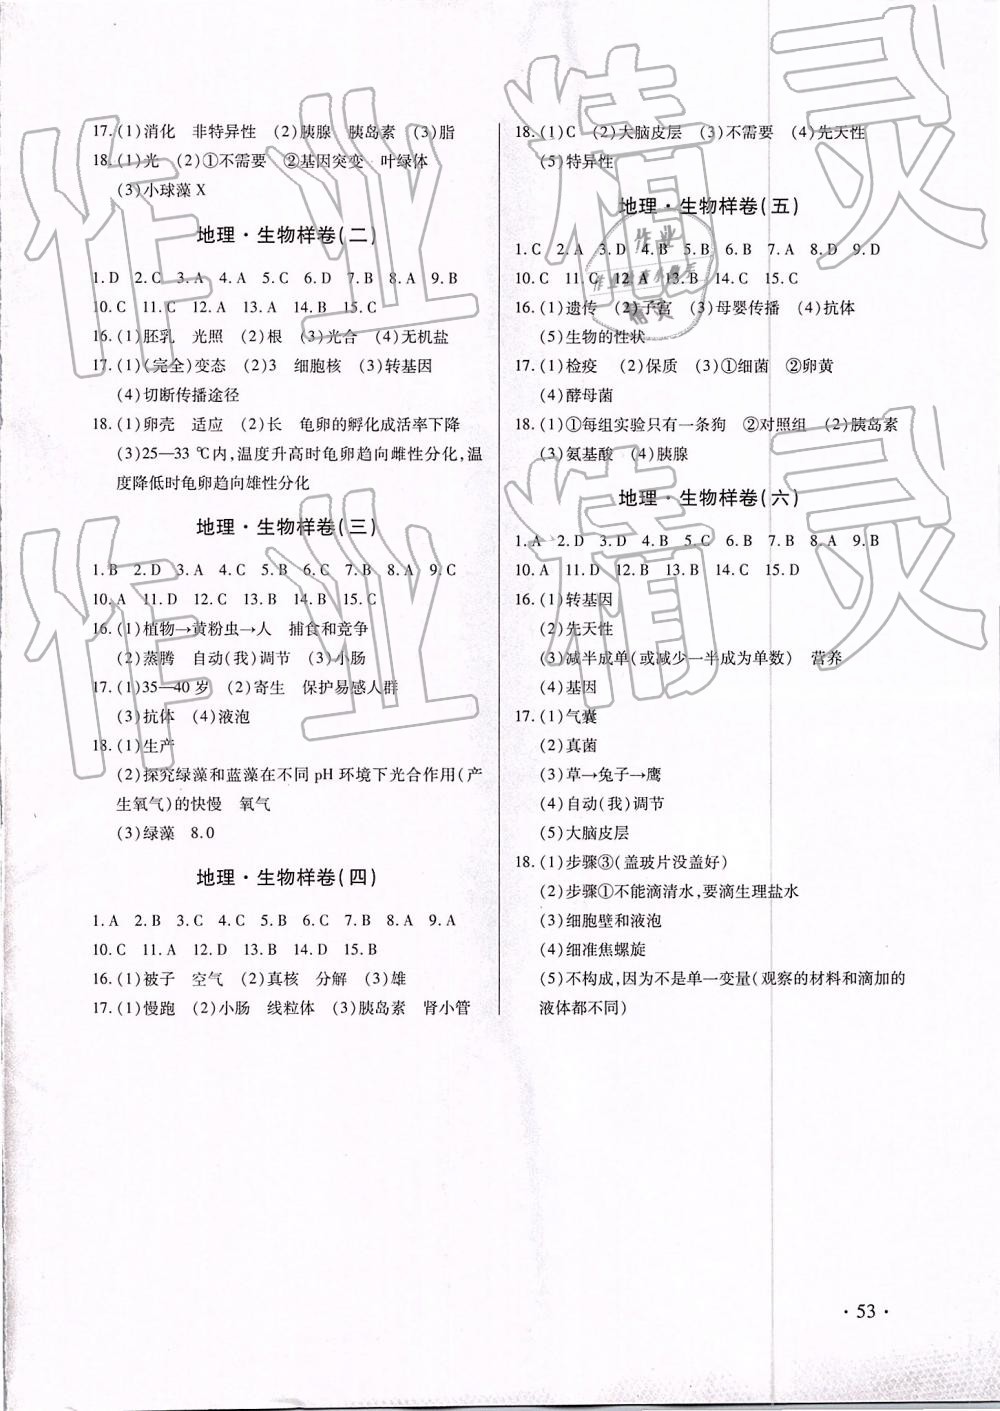 17.(1)消化　非特异性　(2)胰腺　胰岛素　(3)脂
18.(1)光　(2)①不需要　②基因突变　叶绿体
(3)小球藻 X
地理·生物样卷(二)
1.D　2.C　3.A　4.A　5.C　6.D　7.B　8.A　9.B
10.C　11.C　12.A　13.A　14.B　15.C
16.(1)胚乳　光照　(2)根　(3)光合　(4)无机盐
17.(1)(完全)变态　(2)3　细胞核　(3)转基因
(4)切断传播途径
18.(1)卵壳　适应　(2)长　龟卵的孵化成活率下降
(3)25—33 ℃内,温度升高时龟卵趋向雌性分化,温
度降低时龟卵趋向雄性分化
地理·生物样卷(三)
1.B　2.D　3.A　4.C　5.B　6.C　7.B　8.A　9.C
10.A　11.D　12.C　13.B　14.B　15.C
16.(1)植物→黄粉虫→人　捕食和竞争
(2)蒸腾　自动(我)调节　(3)小肠
17.(1)35—40 岁　(2)寄生　保护易感人群
(3)抗体　(4)液泡
18.(1)生产
(2)探究绿藻和蓝藻在不同 pH 环境下光合作用(产
生氧气)的快慢　氧气
(3)绿藻　8.0
地理·生物样卷(四)
1.A　2.B　3.C　4.C　5.B　6.C　7.B　8.A　9.A
10.C　11.A　12.D　13.D　14.C　15.B
16.(1)被子　空气　(2)真核　分解　(3)雄
17.(1)慢跑　(2)小肠　线粒体　(3)胰岛素　肾小管
18.(1)C　(2)大脑皮层　(3)不需要　(4)先天性
(5)特异性
地理·生物样卷(五)
1.C　2.A　3.D　4.B　5.B　6.B　7.A　8.D　9.D
10.C　11.C　12.A　13.B　14.C　15.C
16.(1)遗传　(2)子宫　(3)母婴传播　(4)抗体
(5)生物的性状
17.(1)检疫　(2)保质　(3)①细菌　②卵黄
(4)酵母菌
18.(1)①每组实验只有一条狗　②对照组　(2)胰岛素
(3)氨基酸　(4)胰腺
地理·生物样卷(六)
1.A　2.D　3.D　4.B　5.C　6.B　7.B　8.A　9.B
10.A　11.D　12.B　13.B　14.C　15.D
16.(1)转基因
(2)先天性
(3)减半成单(或减少一半成为单数)　营养
(4)基因
17.(1)气囊
(2)真菌
(3)草→兔子→鹰
(4)自动(我)调节
(5)大脑皮层
18.(1)步骤③(盖玻片没盖好)
(2)步骤①不能滴清水,要滴生理盐水
(3)细胞壁和液泡
(4)细准焦螺旋
(5)不构成,因为不是单一变量(观察的材料和滴加的
液体都不同)
·53·
作业精灵
作业精灵